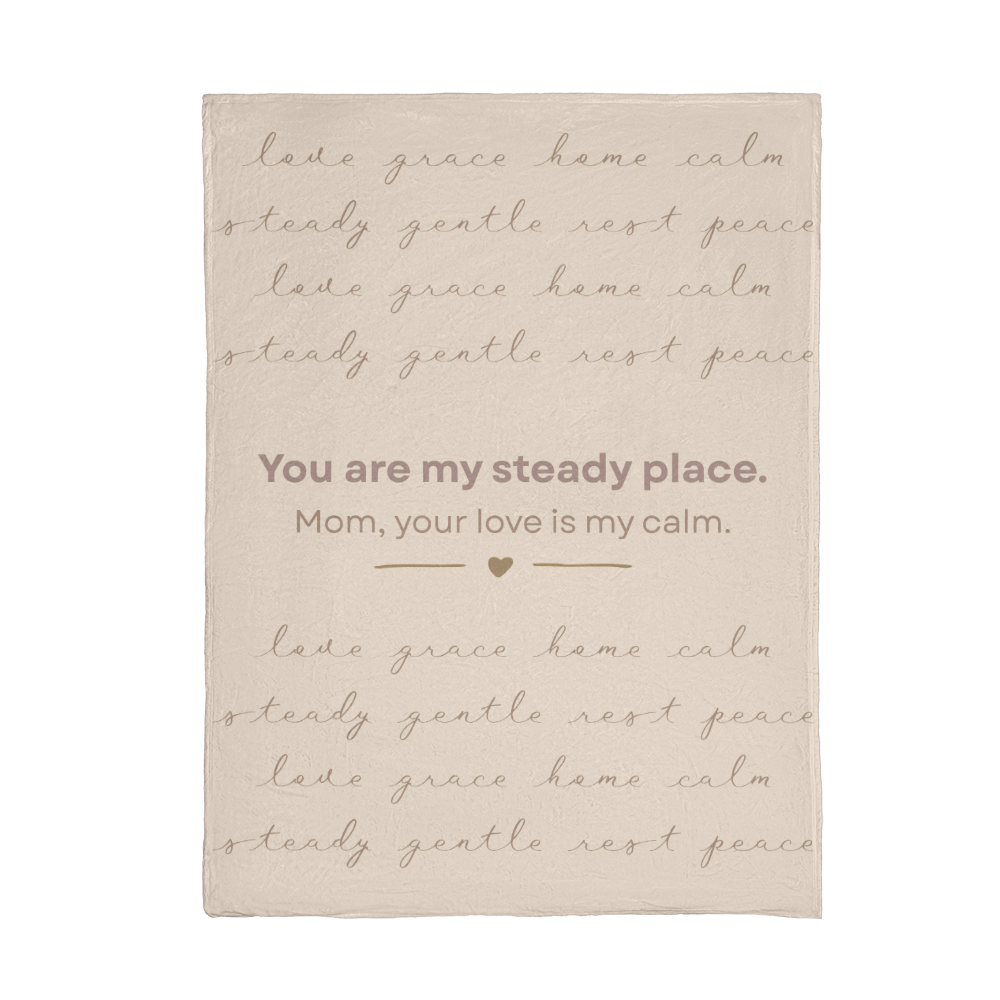 love grace home calm
steady gentle rest peace
love grace home calm
steady gentle rest peace
You are my steady place.
Mom, your love is my calm.
love grace home calm
steady gentle rest peace
love grace home calm
steady gentle rest peace